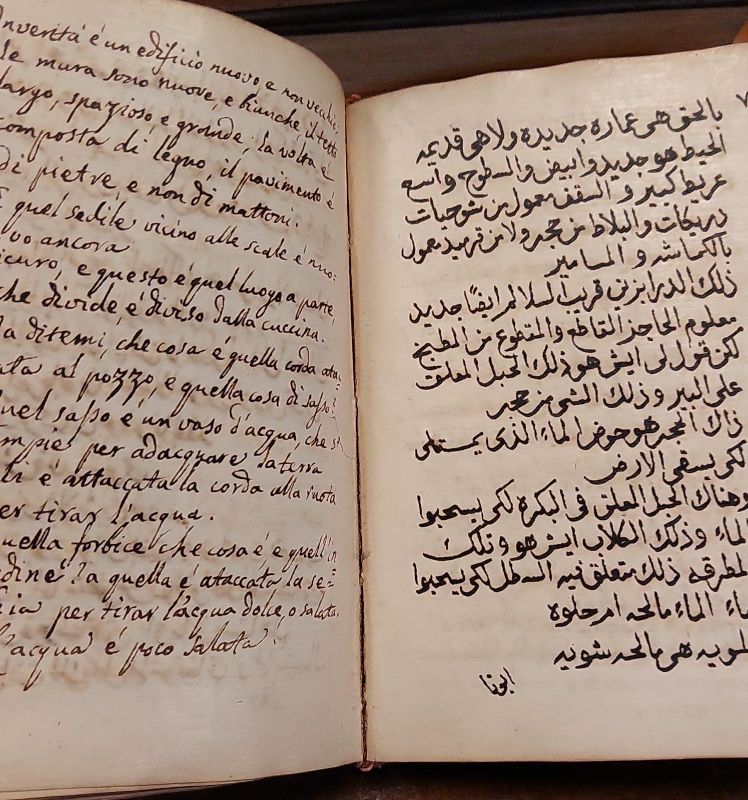 Inverità é un edificio nuovo, e non vecchio;
le mura sono nuove, e bianche, il tetto
largo, spazioso, e grande; la volta é
composta di legno, il pavimento é
di pietre, e non di mattoni.
E quel sedile vicino alle scale é nuo=
vo ancora
sicuro, e questo é quel luogo a parte,
che divide, é diviso dalla cucina.
Ma ditemi, che cosa é quella corda atta=
cata al pozzo, e quella cosa di sasso?
quel sasso é un vaso d'acqua, che s'
empie per adacquare la terra
lì é attaccata la corda alla ruota
per tirar l'acqua.
quella forbice che cosa é, e quell'in=
cudine? a quella é ataccata la se=
chia per tirar l'acqua dolce, o salata.
l'acqua é poco salata.
بالحق هى عمارة جديدة ولا هى قديمه
الحيط هو جديد وابيض والسطوح واسع
عريط كبير والسقف معمول من شوحيات
دربكات والبلاط من حجر ولا من قرميد معمول
بالكماشه والمسامير
ذلك الدرابزين قريب السلالم ايضًا جديد
معلوم الحاجز القاطع والمقطوع من المطبخ
لكن قول لى ايش هو ذلك الحبل المعلق
على البير وذلك الشى من حجر
ذاك الحجر هو حوض الماء الذى يمتلى
لكى يسقى الارض
وهناك الحبل المعلق فى البكرة لكى يسحبوا
الماء وذلك الكلاب ايش هو وتلك
المطرقه ذلك متعلق فيه السطل لكى يسحبوا
ماء الماء مالحه ام حلوة
المويه هى مالحه شويه
ابونا